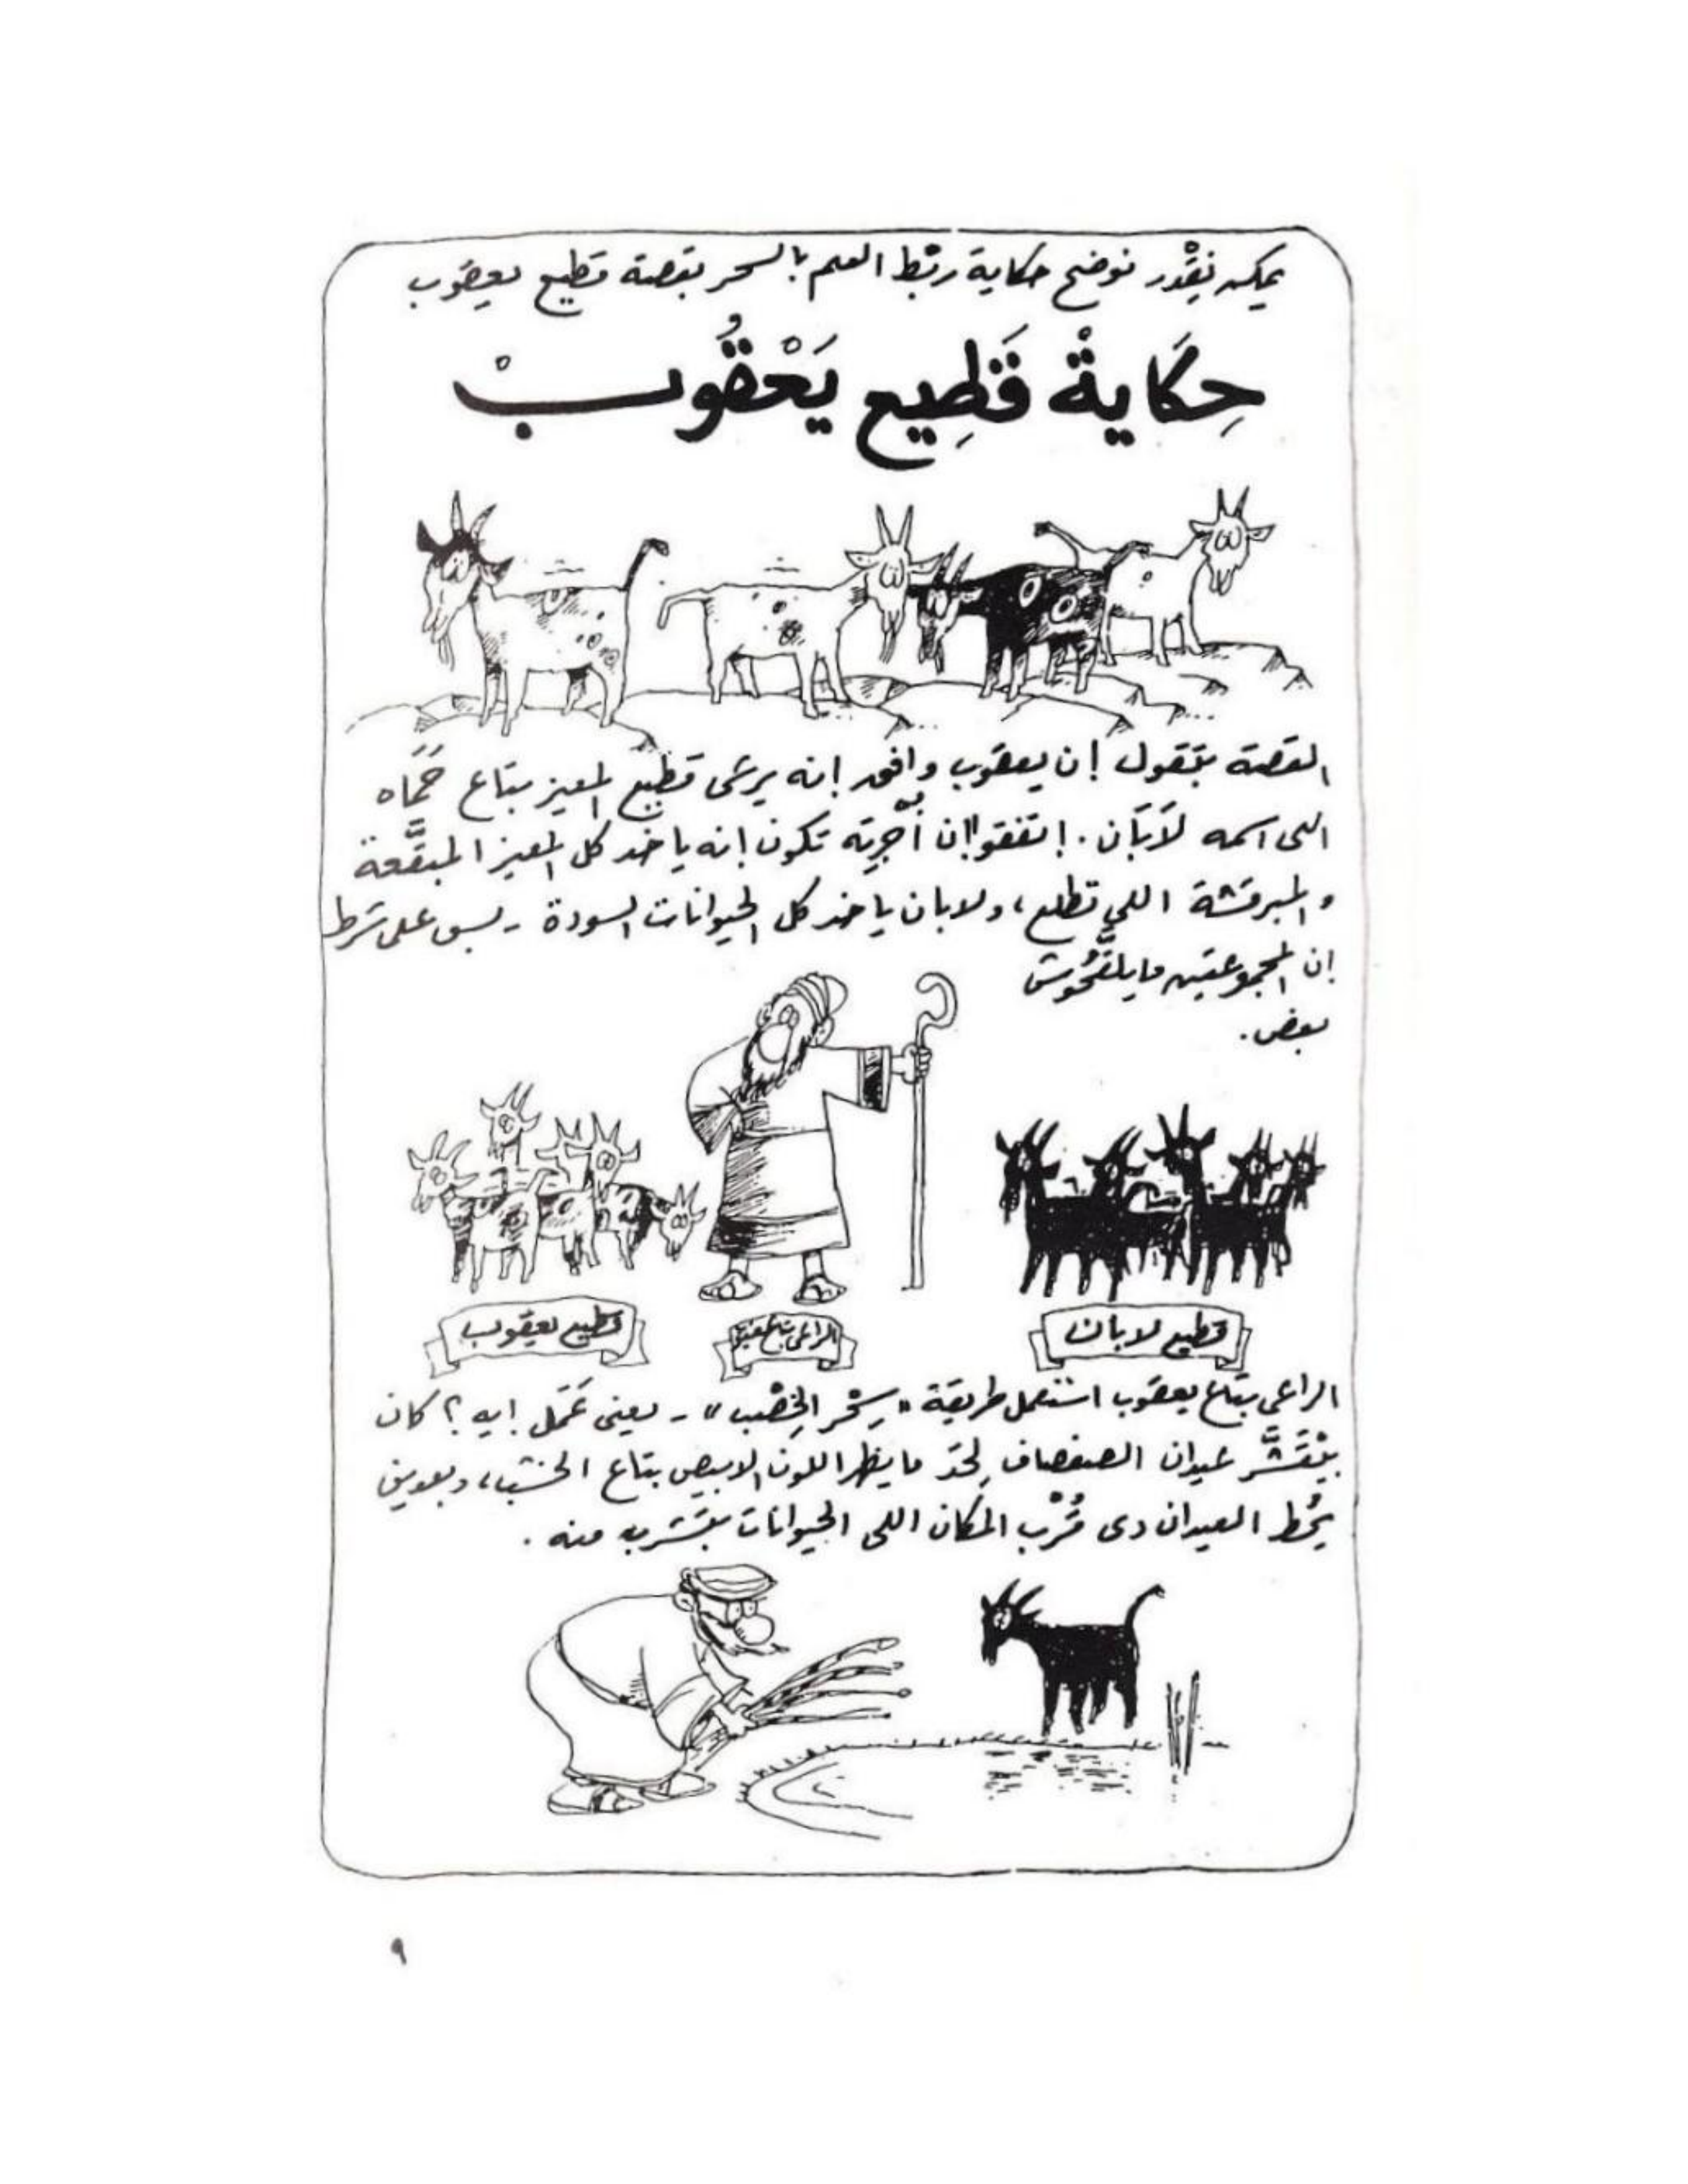 يمكن نِقْدر نوضح حكاية ربْط العلم بالسحر بقصة قطيع يعقوب
حِكَايةْ قَطِيع يَعْقُوبْ
القصة بتقول إن يعقوب وافق إنه يرعى قطيع المعيز بتاع حَمَاه
اللى اسمه لَابَان. إتفقوا إن أجرِته تكون إنه ياخد كل المعيز المبقَّعة
والمبرقشة اللي تطلع، ولابان ياخد كل الحيوانات السودة - بس على شرط
إن المجموعتين مايلقَّحُوش
بعض.
قطيع يعقوب
الراعى بتاع المعيز
قطيع لابان
الراعي بتاع يعقوب استعمل طريقة "سِحْر الخِصْب" - يعنى عَمَل إيه؟ كان
بيْقَشَّر عيدان الصفصاف لِحَد ما يظهر اللون الابيض بتاع الخشب، وبعدين
يحُط العيدان دى قُرْب المكان اللى الحيوانات بتشرب منه.
٩